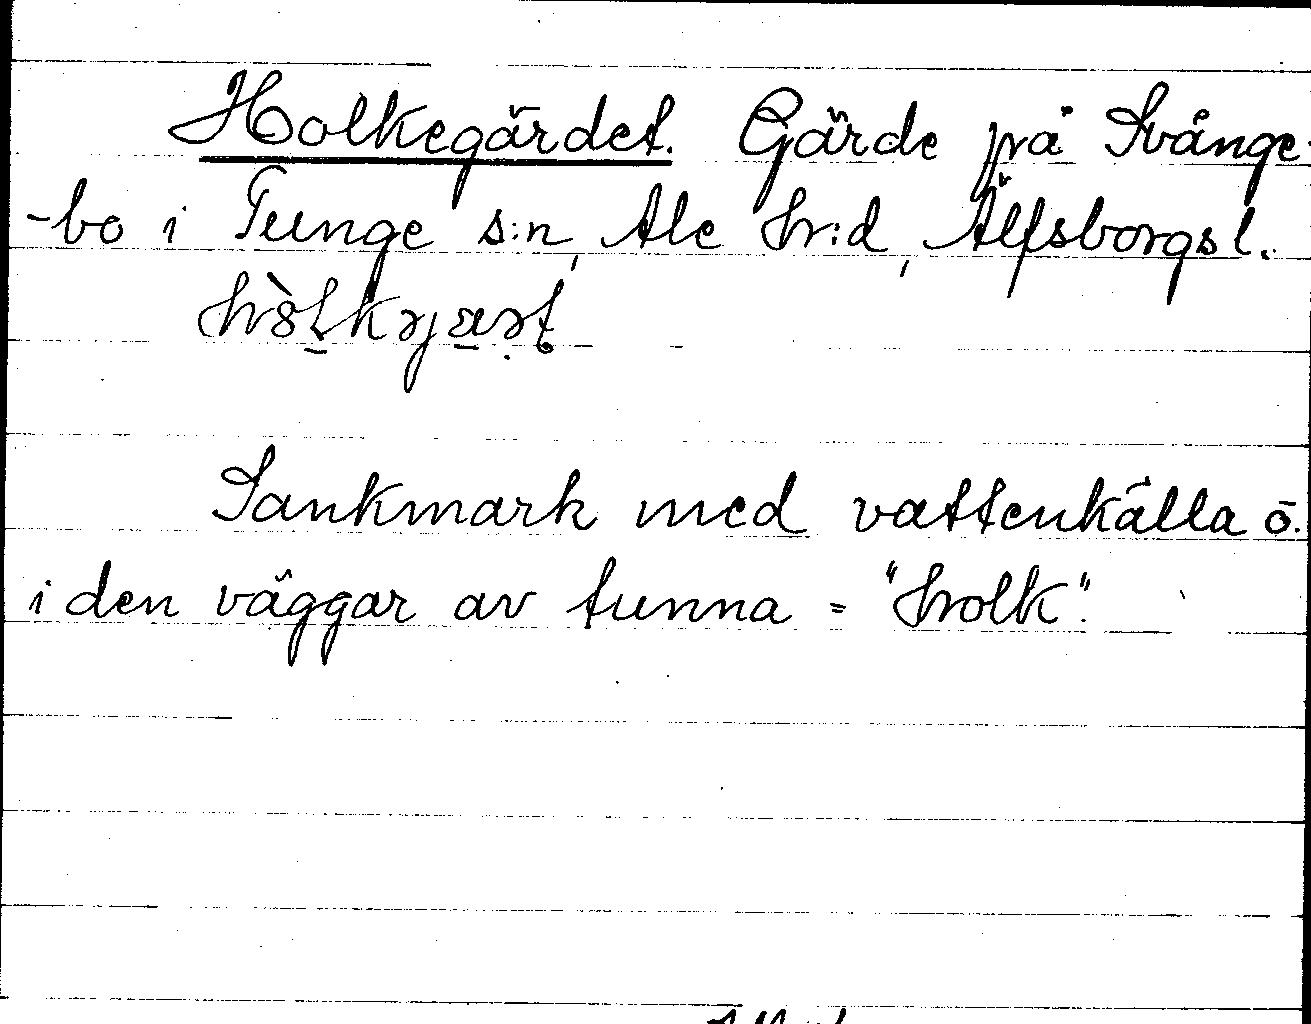 Holkegärdet. Gärde på Svänge-
-bo i Tunge s:n, Ale hr:d, Älfsborgs l.
Sankmark med vattenkälla o.
i den väggar av tunna = "holk".